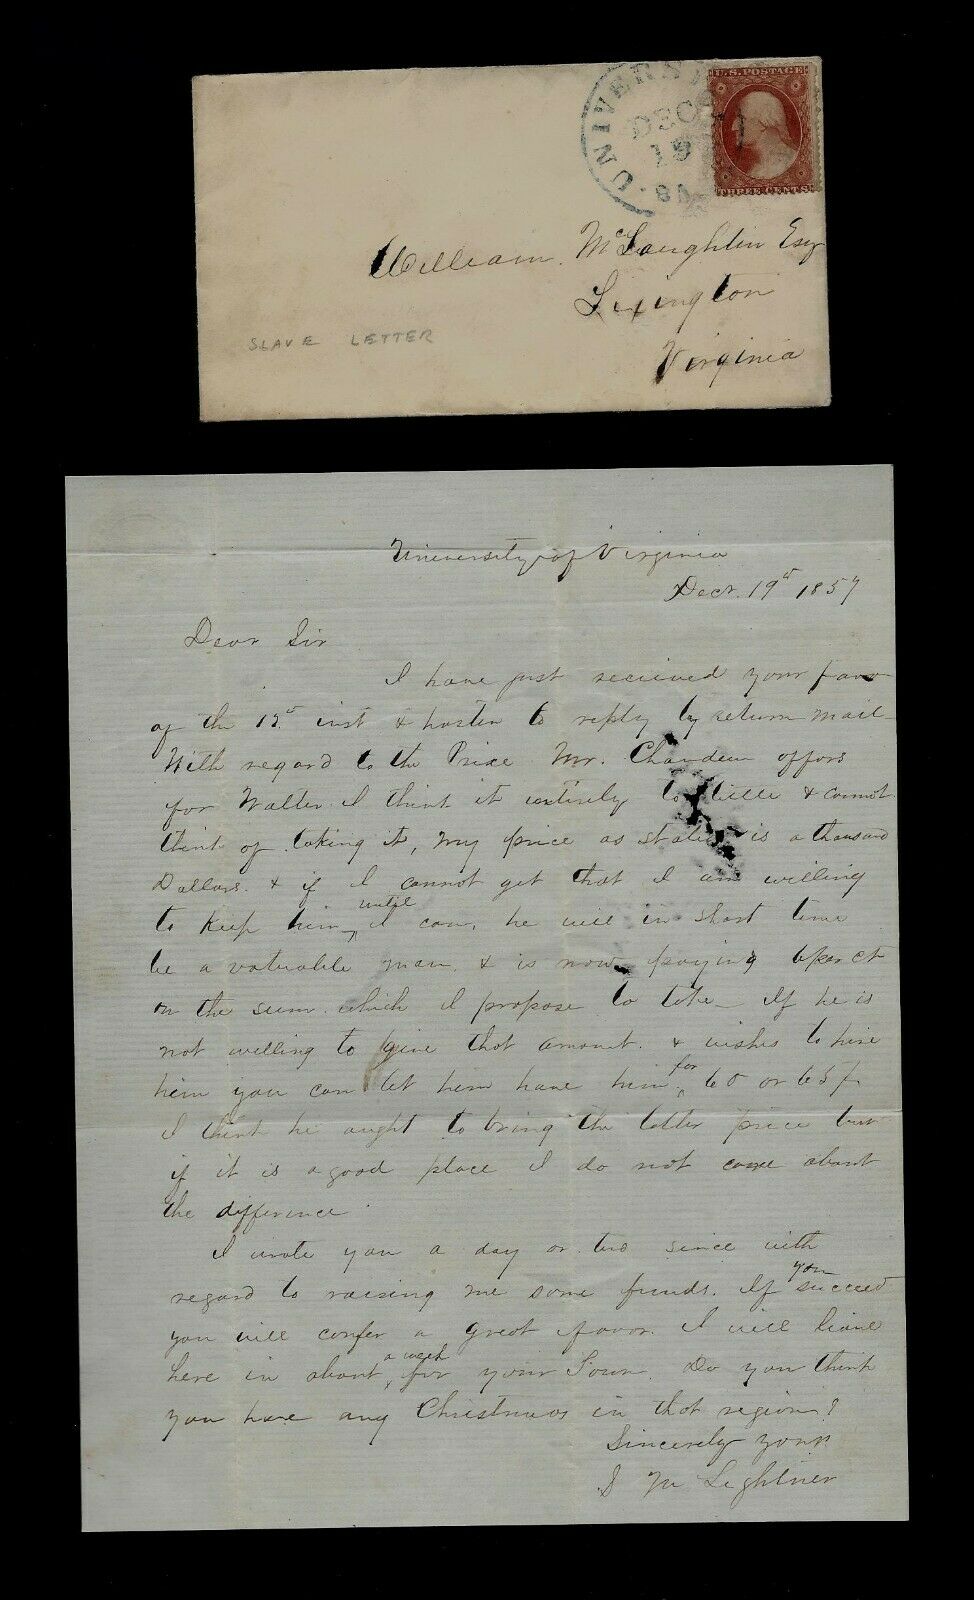 UNIVERSI
DEC
19
U.S. POSTAGE
THREE CENTS
William McLaughlin Esq
Lexington
Virginia
SLAVE LETTER
University of Virginia
Decr. 19th 1857
Dear Sir
I have just recieved your favor
of the inst & hasten to reply by return mail
With regard to the Price Mr. offers
for Walter I think it entirely to little & cannot
think of taking it, my price as stated is a thousand
Dollars. & if I cannot get that I am willing
to keep him until I can, he will in short time
be a valuable man & is now paying 6 per ct
on the sum which I propose to take. If he is
not willing to give that amount. & wishes to hire
him you can let him have him for 60 or 65
I think he ought to bring the latter price but
if it is a good place I do not care about
the difference.
I wrote you a day or two since with
regard to raising me some funds. If you succeed
you will confer a great favor. I will leave
here in about a week for your Town. Do you think
you have any Christmas in that region?
Sincerely yours
M Lightner